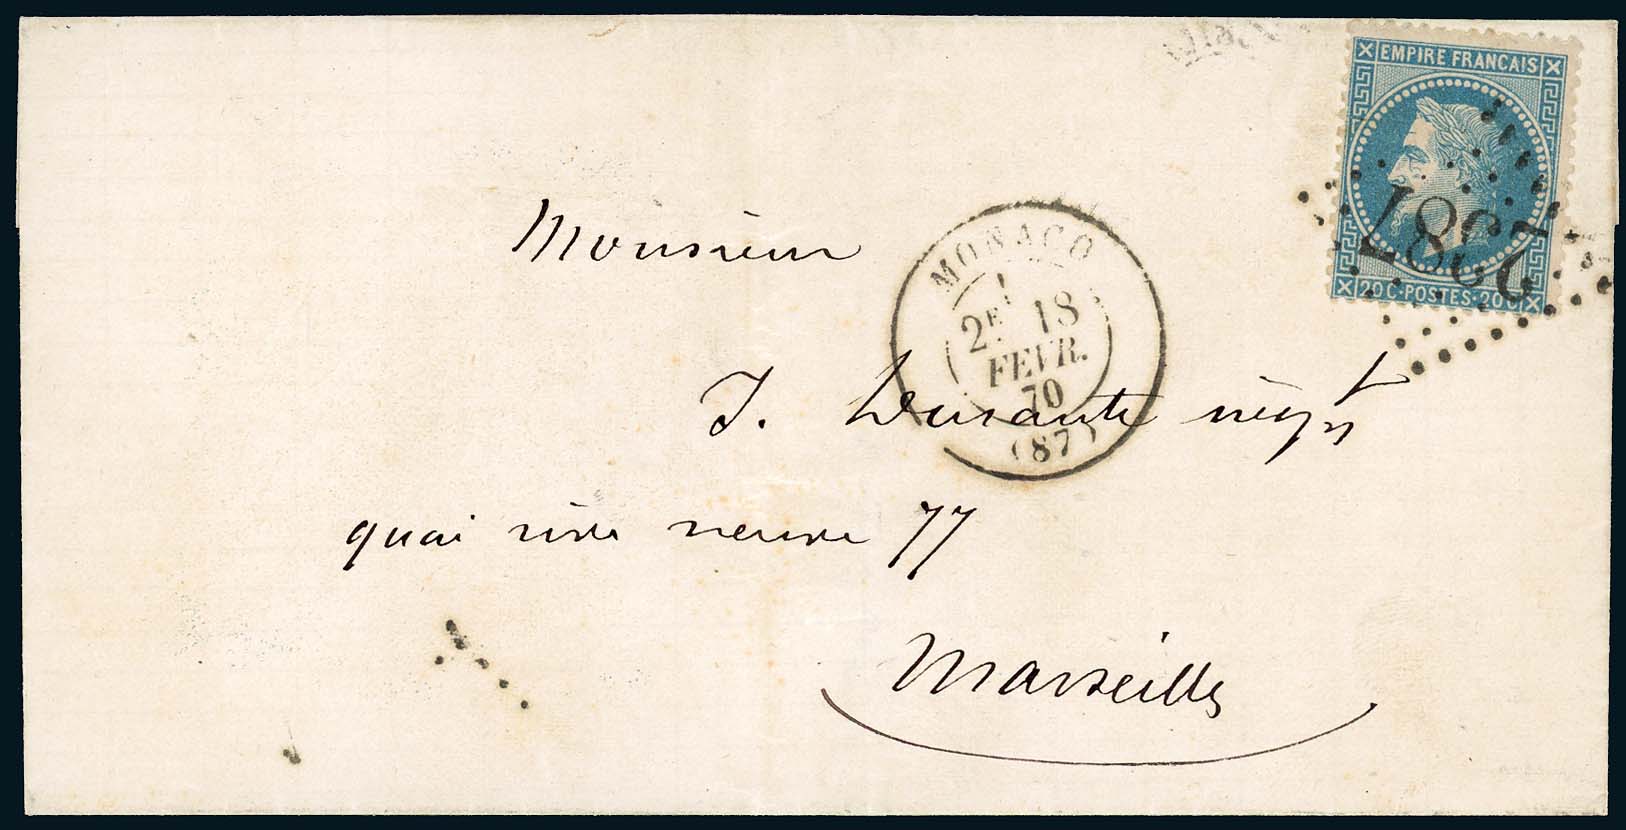 EMPIRE FRANCAIS
20 C · POSTES · 20 C
2387
MONACO
2E 18
FEVR.
70
(87)
Monsieur
J. Durante négt
quai rive neuve 77
Marseille